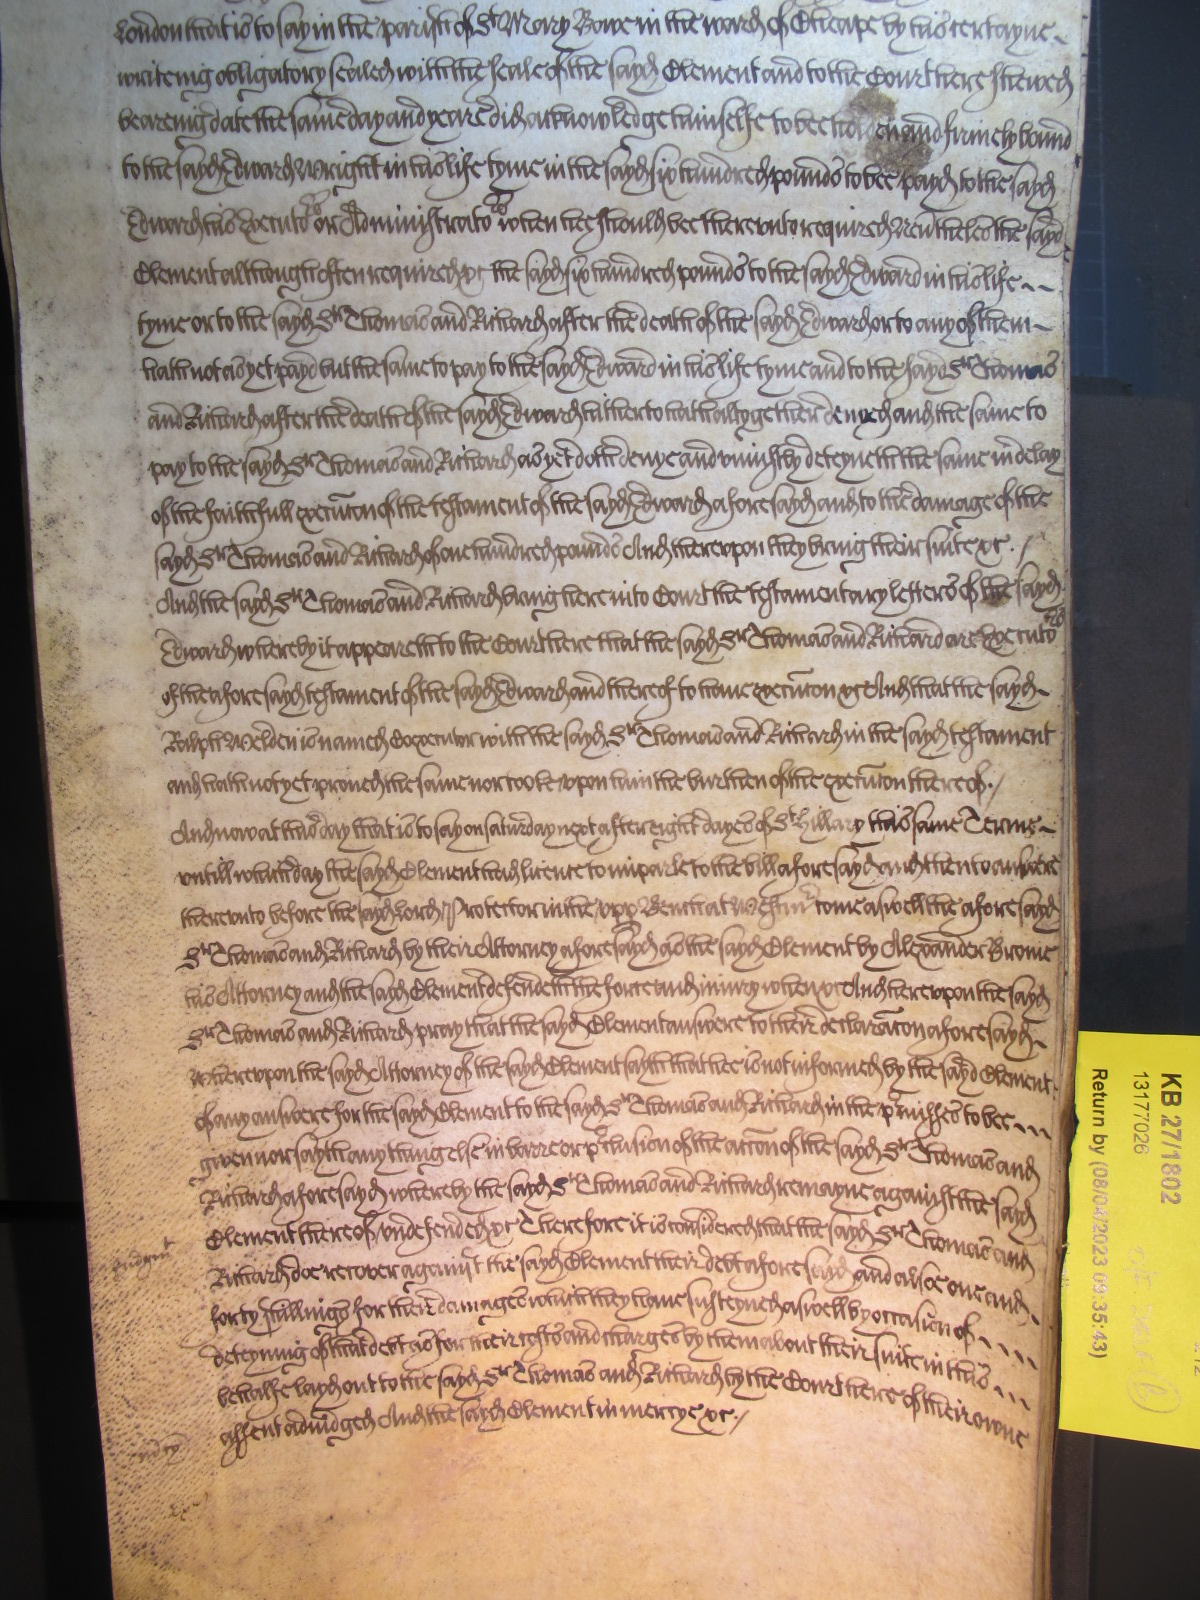 London that is to say in the parish of St Mary Bowe in the ward of Cheape by his certayne
writeing obligatory sealed with the seale of the sayd Clement and to the Court here shewed
beareing date the same day and yeare did acknowledge himselfe to bee holden and firmely bound
to the sayd Edward Wright in his life tyme in the sayd six hundred pounds to bee payd to the sayd
Edward his Executors or Administrators when hee should bee therevnto required Neutheles the sayd
Clement although often required &c the sayd six hundred pounds to the sayd Edward in his life
tyme or to the sayd Sr Thomas and Richard after the death of the sayd Edward or to any of them
hath not as yet payd but the same to pay to the sayd Edward in his life tyme and to the sayd Sr Thomas
and Richard after the death of the sayd Edward hitherto hath altygether denyed and the same to
pay to the sayd Sr Thomas and Richard as yet doth denye and vniustly deteyneth the same in delay
of the faithfull execution of the testament of the sayd Edward aforesayd and to the damage of the
sayd Sr Thomas and Richard of one hundred pounds And therevpon they bring their suite &c. /
And the sayd Sr Thomas and Richard bring here into Court the testamentary letters of the sayd
Edward whereby it appeareth to the Court here that the sayd Sr Thomas and Richard are Executors
of the aforesayd testament of the sayd Edward and thereof to haue execution &c And that the sayd
Ralph Welden is named Coexecutor with the sayd Sr Thomas and Richard in the sayd testament
and hath not yet proued the same nor tooke vpon him the burthen of the execution thereof. /
And now at this day that is to say on saturday next after eight dayes of St Hillary this same Terme
vntill which day the sayd Clement had licence to imparle to the bill aforesayd and then to answere
therevnto before the sayd Lord Protector in the vpp Bench at Westmr come aswell the aforesayd
Sr Thomas and Richard by their Attorney aforesayd as the sayd Clement by Alexander Brome
his Attorney and the sayd Clement defendeth the force and iniury when &c And herevpon the sayd
Sr Thomas and Richard pray that the sayd Clement answere to their declaration aforesayd
Wherevpon the sayd Attorney of the sayd Clement sayth that hee is not informed by the sayd Clement
of any answere for the sayd Clement to the sayd Sr Thomas and Richard in the pmisses to bee
given nor sayth any thing else in barre or pclusion of the action of the sayd Sr Thomas and
Richard aforesayd whereby the sayd Sr Thomas and Richard remayne against the sayd
Clement thereof vndefended &c Therefore it is considered that the sayd Sr Thomas and
Richard doe recover against the sayd Clement their debt aforesayd and alsoe one and
forty shillings for their damages which they haue susteyned aswell by occasion of
deteyning of that debt as for their costs and charges by them about their suite in this
behalfe layd out to the sayd Sr Thomas and Richard by the Court here of their owne
assent adiudged And the sayd Clement in mercye &c. /
Judgmt
mcy
KB 27/1802
13177/026
Return by (08/04/2023 09:35:43)